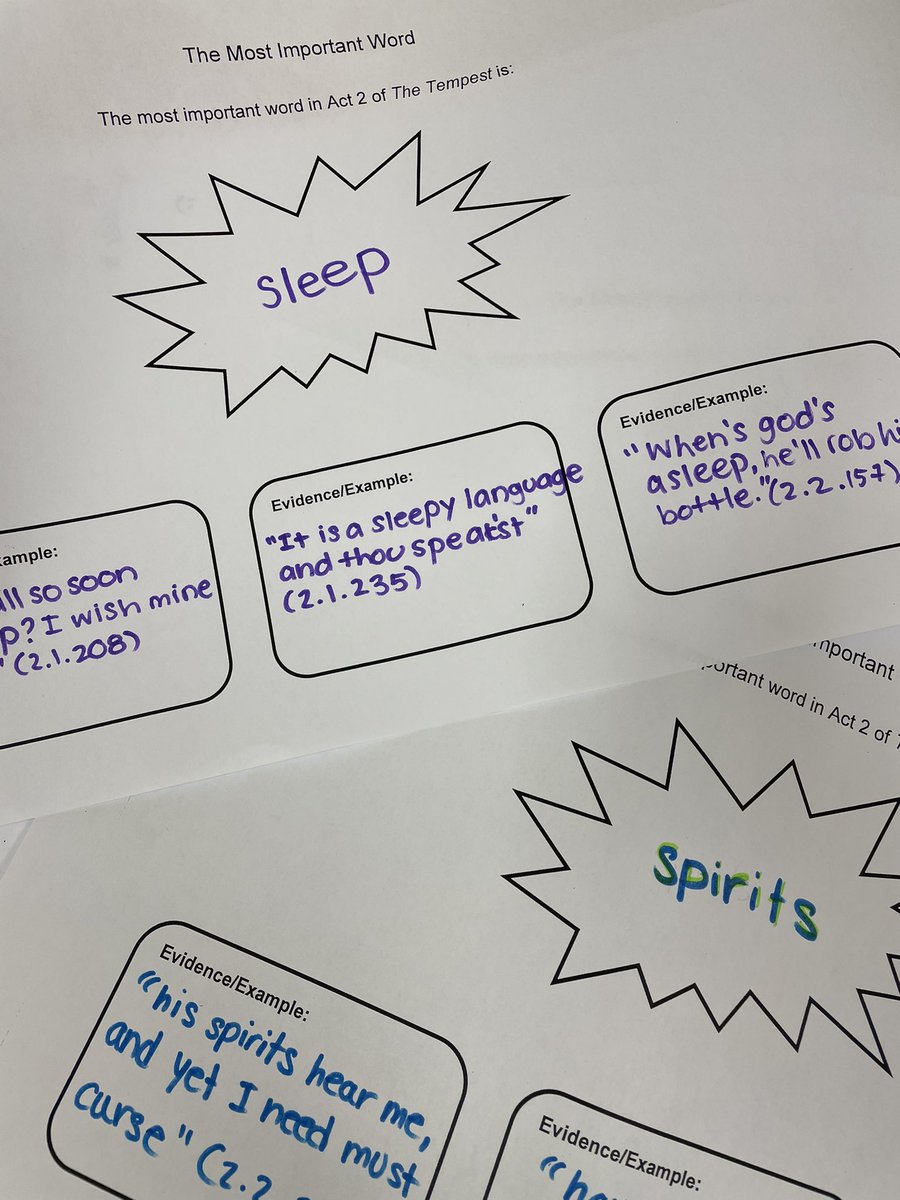 The Most Important Word
The most important word in Act 2 of The Tempest is:
sleep
Evidence/Example:
all so soon
? I wish mine
" (2.1.208)
Evidence/Example:
"It is a sleepy language
and thou speak'st"
(2.1.235)
Evidence/Example:
"When's god's
asleep, he'll rob hi
bottle." (2.2.157)
mportant
ortant word in Act 2 of
spirits
Evidence/Example:
"his spirits hear me,
and yet I need must
curse" (2.2
Evidence/Example: